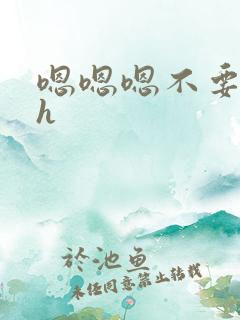 嗯嗯嗯不要
h
於池鱼
未经同意禁止转载